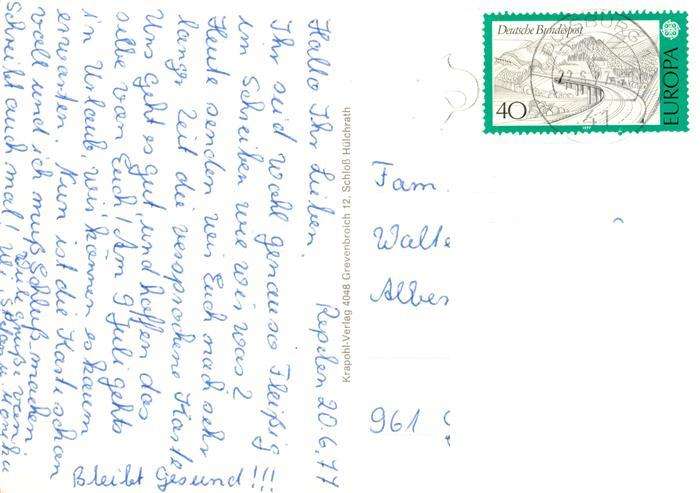 Hallo Ihr Lieben.
Repelen 20.6.77
Ihr seid wohl genauso fleißig
im Schreiben wie wir was?
Heute senden wir Euch nach sehr
langer Zeit die versprochne Karte
Uns geht es gut, und hoffen das
selbe von Euch! Am 9 Juli gehts
in Urlaub, wir können es kaum
erwarten. Nun ist die Karte schon
voll und ich muß Schluß machen
Schreibt auch mal! Viele Grüße von
Bleibt gesund!!!
Krapohl-Verlag 4048 Grevenbroich 12, Schloß Hülchrath
Deutsche Bundespost
40
EUROPA
1977
Fam.
Walte
Alber
961